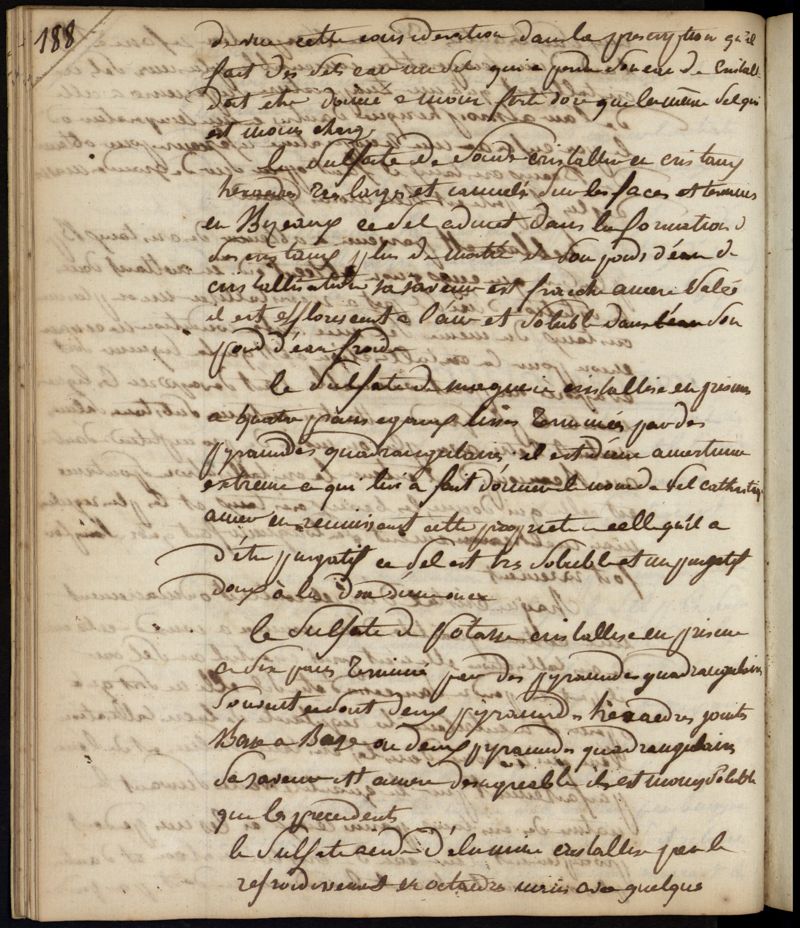 188
de vue cette consideration dans la prescription qu'il
fait des sels car un sel qui a perdu son eau de Cristall
doit etre donné a moins forte dose que le même sel qui
est moins chargé
le Sulfate de Soude cristallise en cristaux
hexaedres larges et canelés sur les faces et terminés
en Bizeaux ce sel admet dans la formation d
ses cristaux plus de moitié de son poids d'eau de
cristallisation sa saveur est fraiche amere salée
il est efflorescent a l'air et soluble dans leau son
poid d'eau froide
le Sulfate de magnesie cristallise en prismes
a quatre pans egaux lisses terminés par des
pyramides quadrangulaires il est d'une amertume
extreme ce qui lui a fait donner le nom de sel cathartiq
amer en reunissant cette propriete a celle qu'il a
d'être purgatif ce sel est tres soluble et un purgatif
doux à la dose d'une once
le Sulfate de potasse cristallise en prisme
a six pans terminé par des pyramides quadrangulaires
souvent ce sont deux pyramides hexaedres joints
Base a Base ou deux pyramides quadrangulaires
sa saveur est amere desagreable il est moins soluble
que les precedents
le Sulfate acide d'alumine cristallise par le
refroidissement en octaedres avec quelque